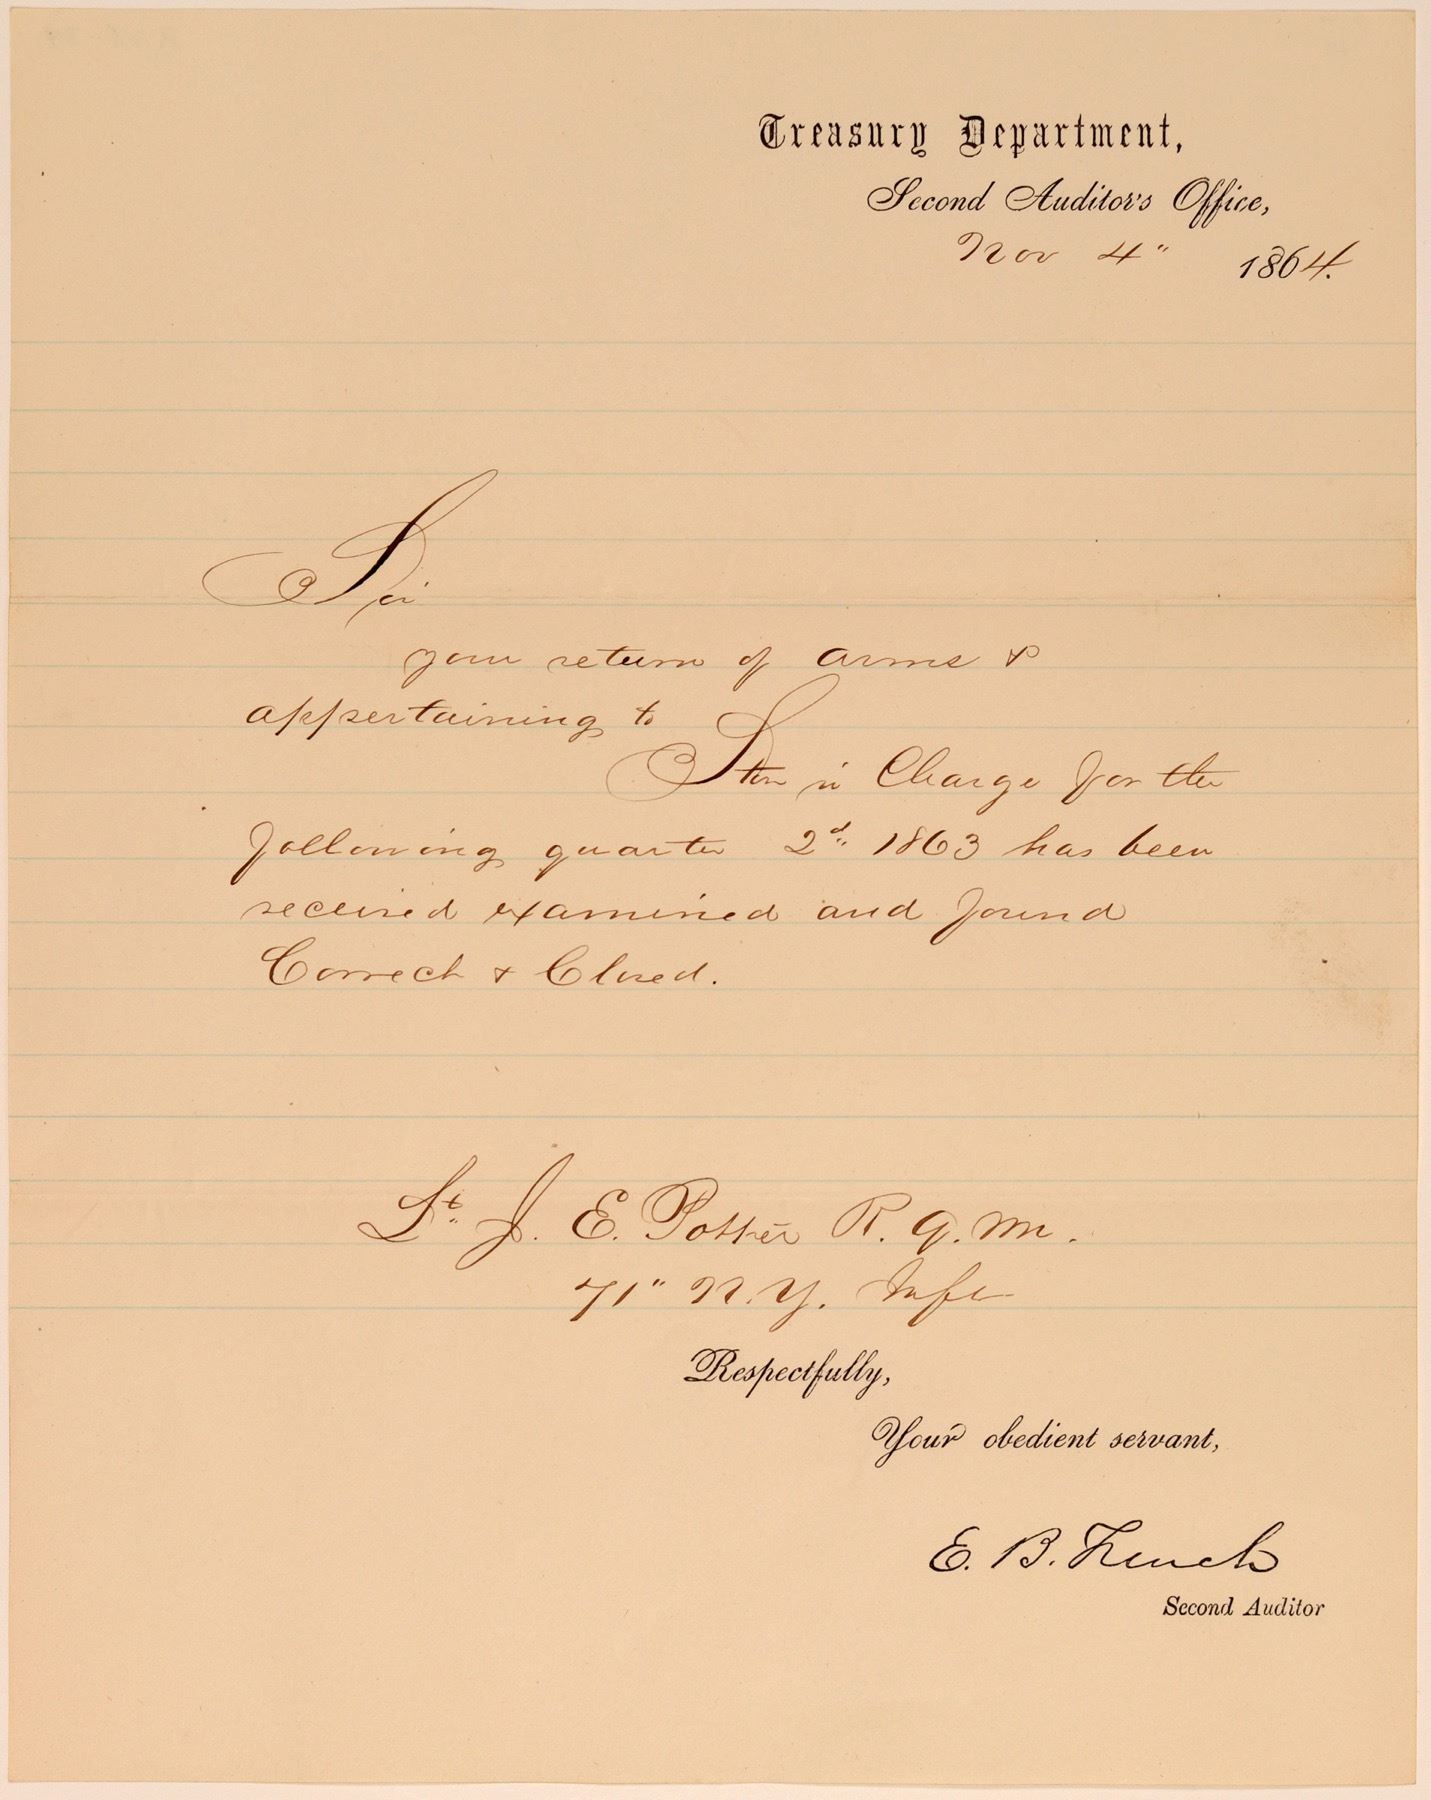 Treasury Department,
Second Auditor's Office,
Nov 4" 1864.
Sir
your return of arms &
appertaining to
Stors in Charge for the
following quarter 2d" 1863 has been
received examined and found
Correct & Closed.
Lt. J. E. Potter R. Q. M.
71" N.Y. Infc
Respectfully,
Your obedient servant,
E. B. French
Second Auditor